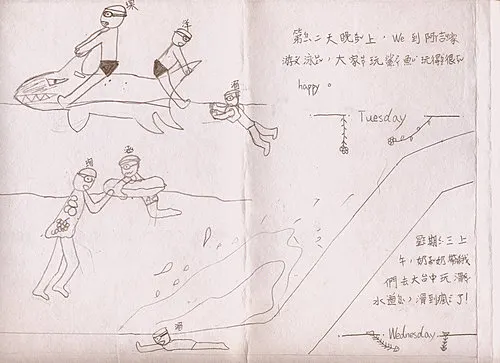 洋
第二天晚上，We到阿吉家
游泳池，大家玩鯊魚玩得很
happy。
Tuesday
星期三上
午，奶奶帶我
們去大台中玩滑
水道，滑到瘋了！
Wednesday